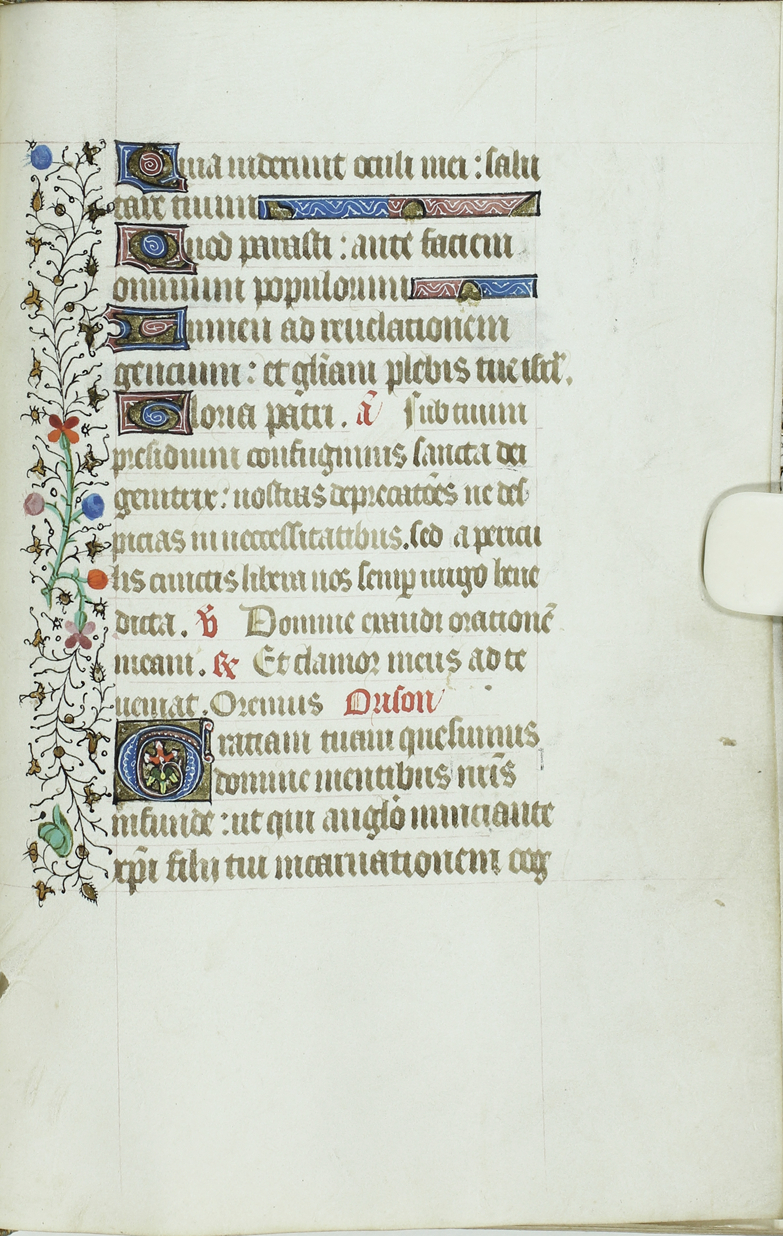 Quia uiderunt oculi mei : salu
tare tuum
Quod parasti : ante faciem
omnium populorum
Lumen ad reuelationem
gencium : et gl̃iam plebis tue isrl̃.
Gloria patri . ã Sub tuum
presidium confugimus sancta dei
genitrix : nostras deprecatiões ne des
picias in necessitatibus . sed a pericu
lis cunctis libera nos semp̲ uirgo bene
dicta . v̾ Domine exaudi orationẽ
meam . ℟ Et clamor meus ad te
ueniat . Oremus Orison
Gratiam tuam quesumus
domine mentibus nr̃is
infunde : ut qui anglo nunciante
xp̃i filii tui incarnationem cog